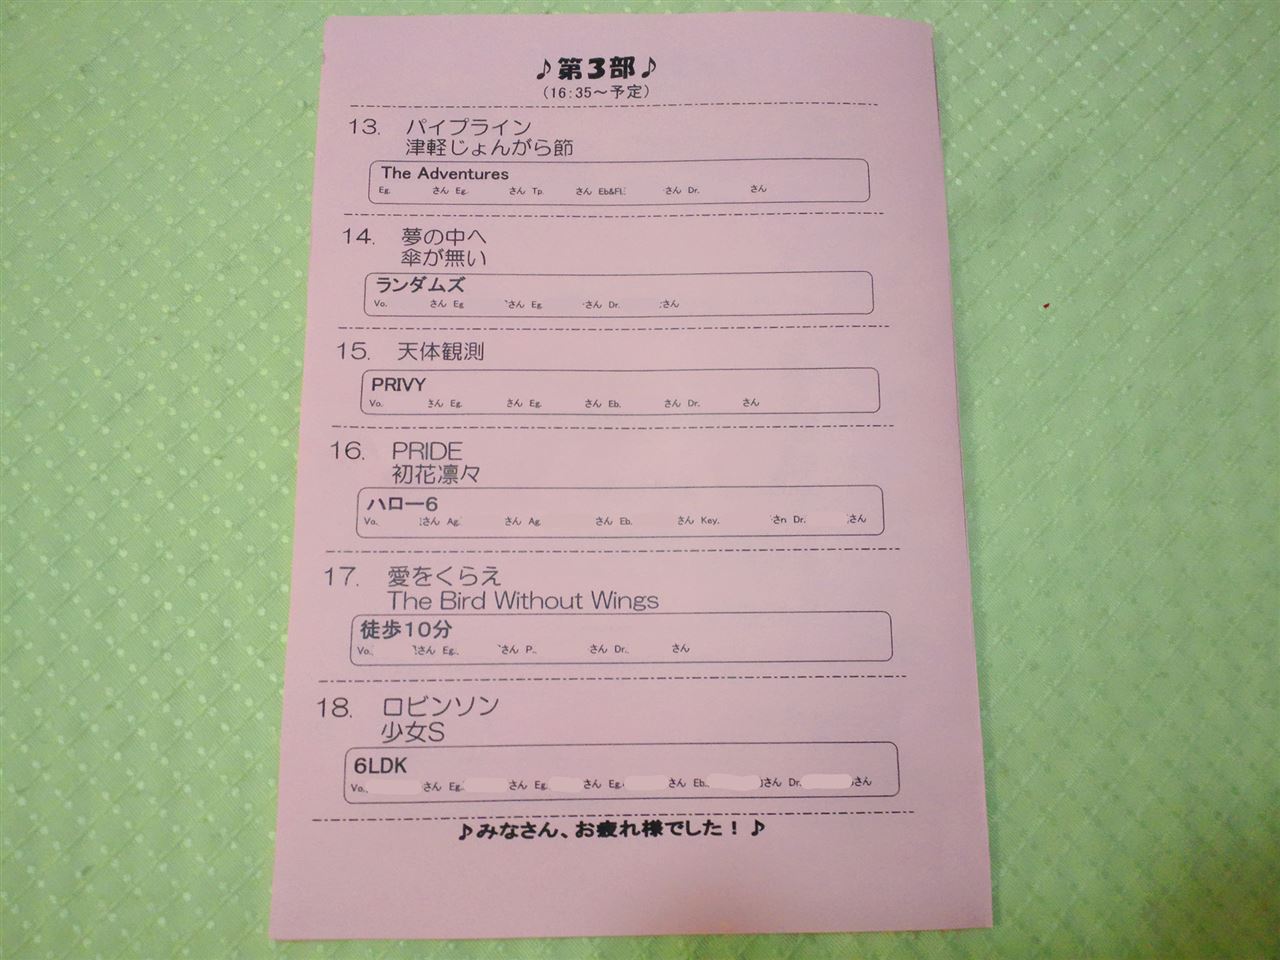 ♪第3部♪
（16:35～予定）
13. パイプライン
津軽じょんがら節
The Adventures
Eg. さん Eg. さん Tp. さん Eb&Fl. さん Dr. さん
14. 夢の中へ
傘が無い
ランダムズ
Vo. さん Eg. さん Eg. さん Dr. さん
15. 天体観測
PRIVY
Vo. さん Eg. さん Eg. さん Eb. さん Dr. さん
16. PRIDE
初花凛々
ハロー6
Vo. さん Ag. さん Ag. さん Eb. さん Key. さn Dr. さん
17. 愛をくらえ
The Bird Without Wings
徒歩10分
Vo. さん Eg. さん P. さん Dr. さん
18. ロビンソン
少女S
6LDK
Vo. さん Eg. さん Eg. さん Eg. さん Eb. さん Dr. さん
♪みなさん、お疲れ様でした！♪